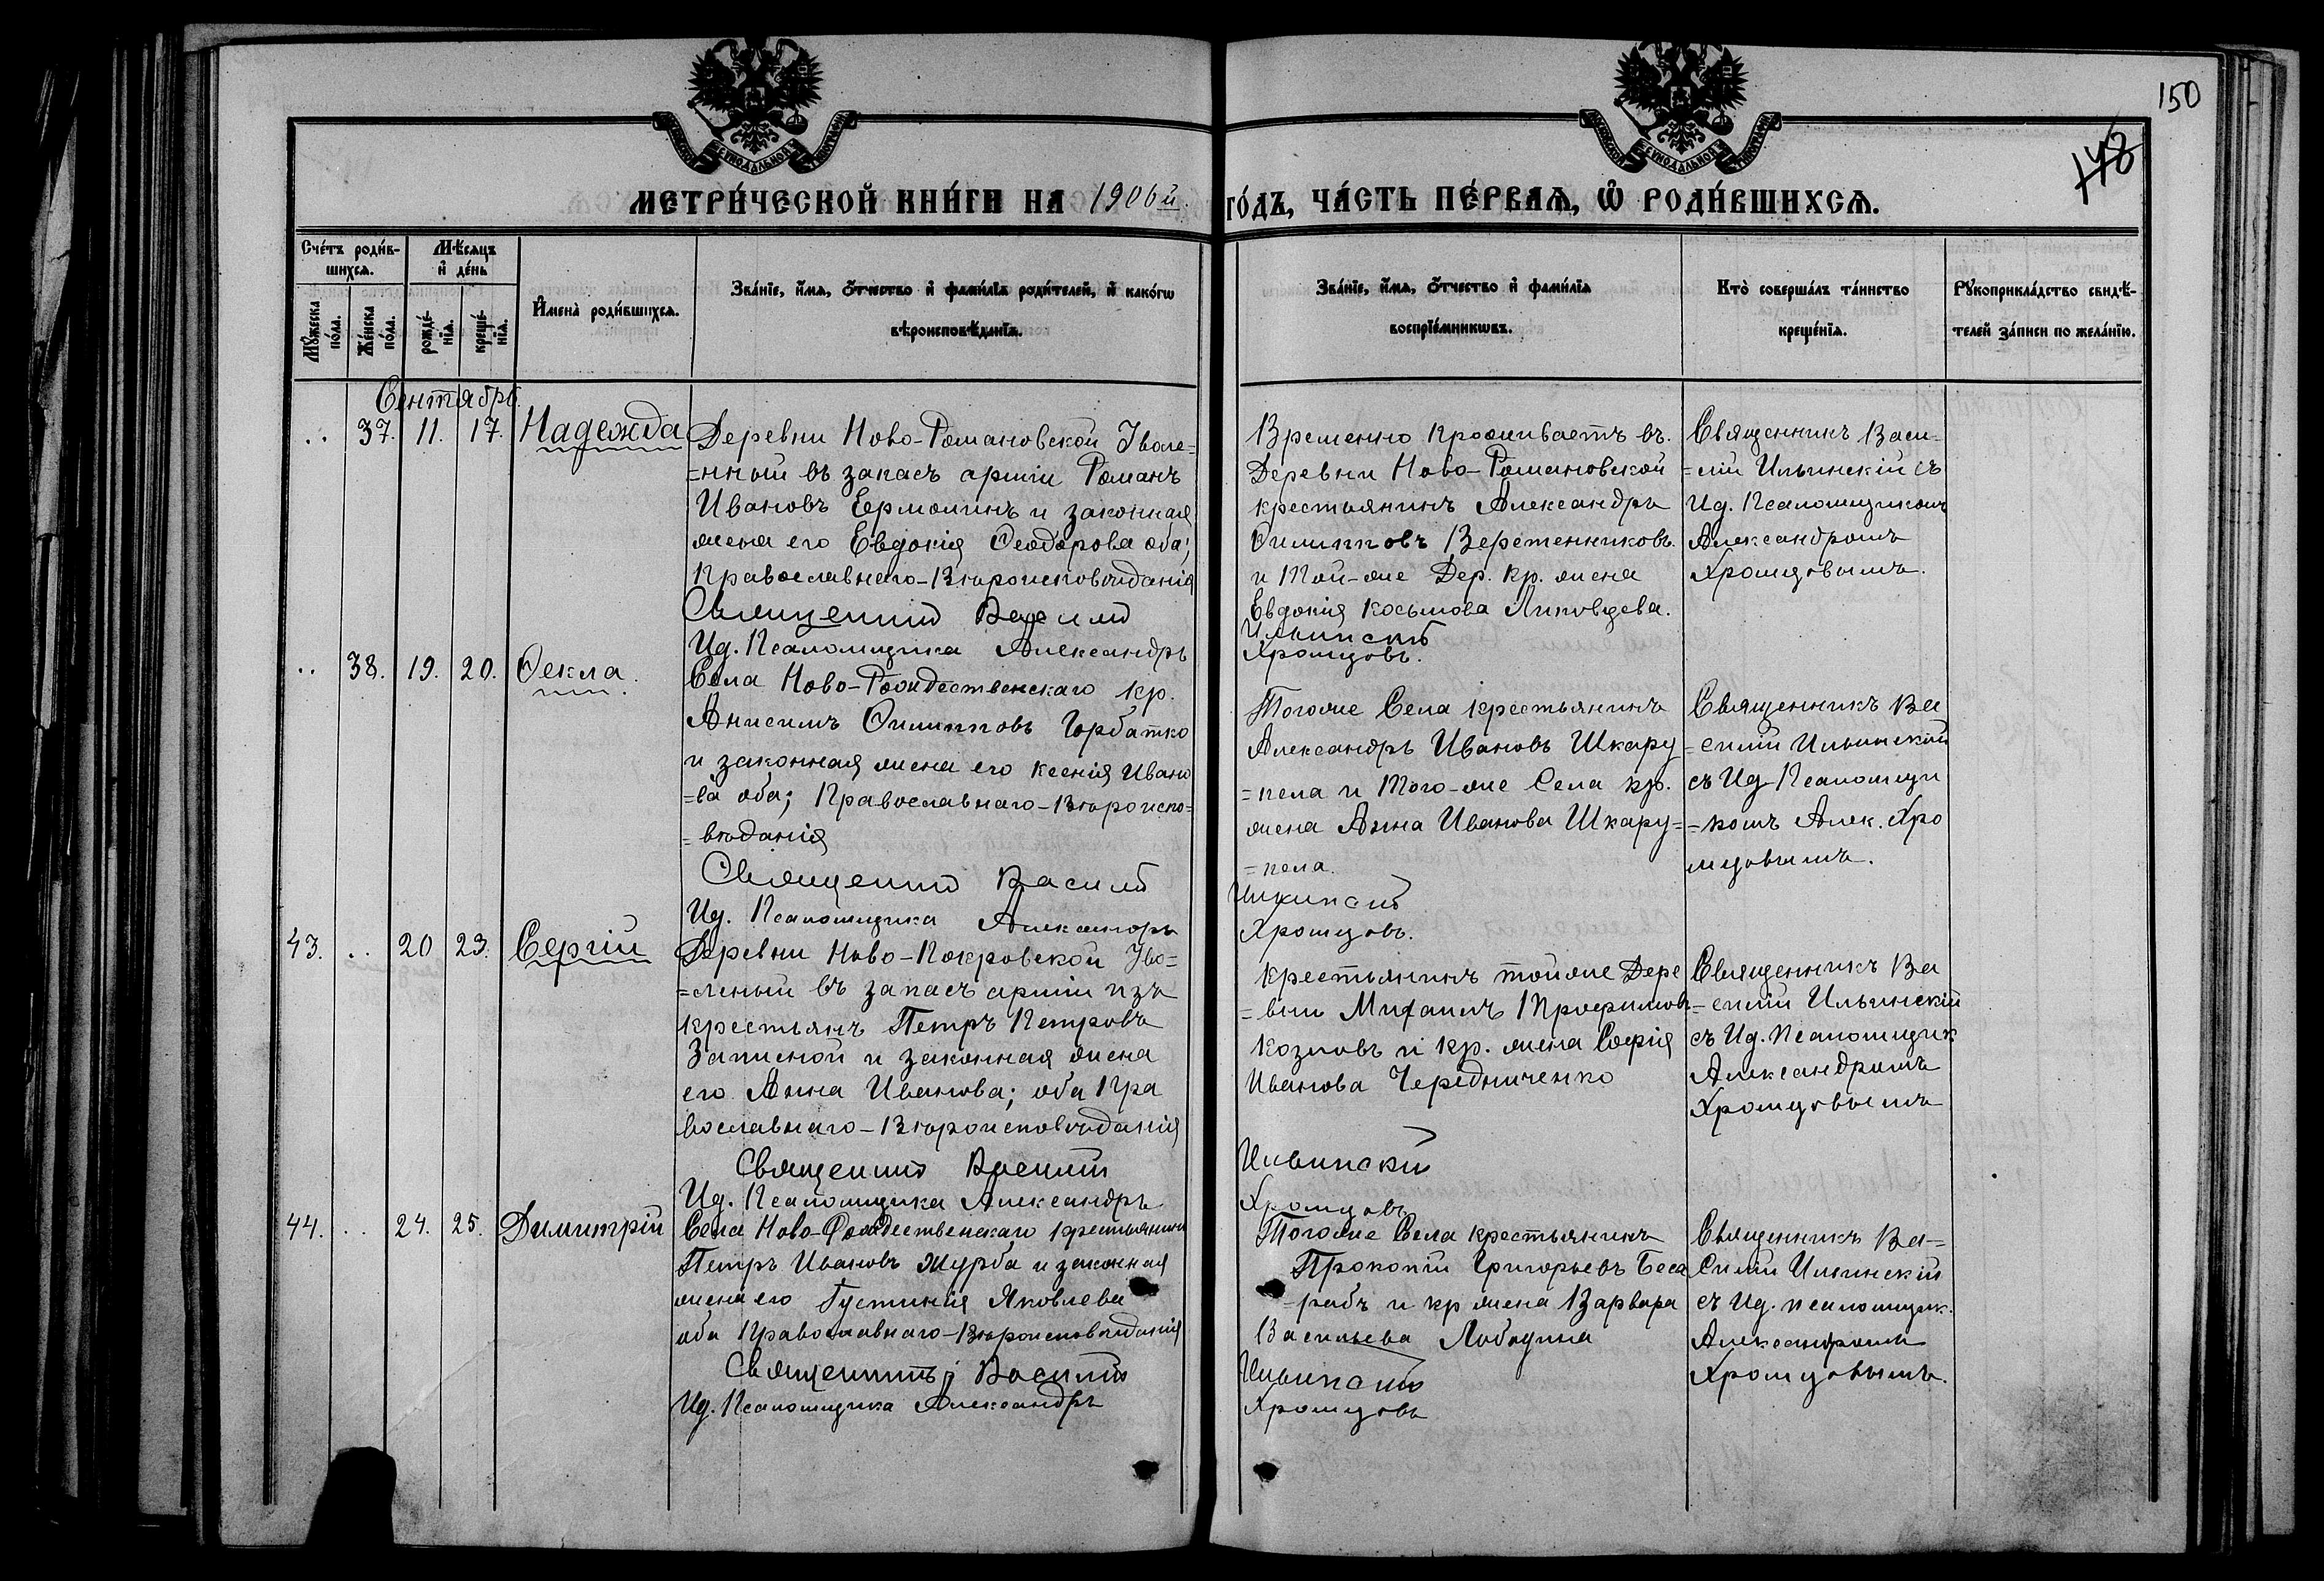 150
148
МОСКОВСКОЙ СѴНОДАЛЬНОЙ ТИПОГРАФІИ
МОСКОВСКОЙ СѴНОДАЛЬНОЙ ТИПОГРАФІИ
МЕТРИ́ЧЕСКОЙ КНИ́ГИ НА 1906й.
ГО́ДЪ, ЧА́СТЬ ПЕ́РВАѦ, Ѡ РОДИ́ВШИХСѦ.
Сче́тъ роди́в-
шихсѧ.
Мѣ́сяцъ
и҆ де́нь
Мꙋ́жеска по́ла.
Же́нска по́ла.
рожде́-
нїѧ.
креще́-
нїѧ.
И҆мена̀ роди́вшихсѧ.
Зва́нїе, и҆́мѧ, о҆́тчество и҆ фами́лїѧ роди́телей, и҆ како́гѡ
вѣроисповѣ́данїѧ.
Зва́нїе, и҆́мѧ, о҆́тчество и҆ фами́лїѧ
воспрїе́мникѡвъ.
Кто̀ соверша́лъ та́инство
креще́нїѧ.
Рꙋкоприкла́дство свидѣ́-
телей за́писи по жела́нїю.
Сентябрь.
.. 37. 11. 17. Надежда
Деревни Ново-Романовской Уволе=
=нный въ запасъ арміи Романъ
Ивановъ Ермолинъ и законная
жена его Евдокія Ѳеодорова оба;
Православнаго-Вѣроисповѣданія
Священникъ Василій
Ид. Псаломщика Александръ
Временно проживаетъ въ.
Деревни Ново-Романовской
крестьянинъ Александръ
Филипповъ Веретенниковъ.
и Той-же Дер. Кр. жена
Евдокія Косьмова Лиховцева.
Ильинскій
Хромцовъ.
Священникъ Васи=
=лій Ильинскій съ
Ид. Псаломщикомъ
Александромъ
Хромцовымъ.
.. 38. 19. 20. Ѳекла.
Села Ново-Рождественскаго кр.
Анисимъ Филипповъ Горбатко
и законная жена его Ксенія Ивано
=ва оба; Православнаго-Вѣроиспо=
=вѣданія
Священникъ Василій
Ид. Псаломщика Александръ
Тогоже Села крестьянинъ
Александръ Ивановъ Шкару
=пела и Того-же Села кр.
жена Анна Иванова Шкару=
=пела.
Ильинскій
Хромцовъ.
Священникъ Ва
=силій Ильинскій
съ Ид. Псаломщи
=комъ Алек. Хро
мцовымъ.
43. .. 20 23. Сергій
Деревни Ново-Покровской Уво=
=леный въ запасъ арміи изъ
крестьянъ Петръ Петровъ
Записной и законная жена
его Анна Иванова; оба Пра
вославнаго-Вѣроисповѣданія
Священникъ Василій
Ид. Псаломщика Александръ
Крестьянинъ тойже Дере
=вни Михаилъ Трофимовъ
Козловъ и Кр. жена Софія
Иванова Чередниченко
Ильинскій
Хромцовъ
Священникъ Ва
=силій Ильинскій
съ Ид. Псаломщик
Александромъ
Хромцовымъ
44. .. 24. 25. Димитрій
Села Ново-Рождественскаго крестьянинъ
Петръ Ивановъ Журба и законная
жена его Густинія Яковлева
оба Православнаго-Вѣроисповѣданія
Священникъ Василій
Ид. Псаломщика Александръ
Тогоже Села крестьянинъ
Прокопій Григорьевъ Беса
=рабъ и кр жена Варвара
Васильева Лободина
Ильинскій
Хромцовъ
Священникъ Ва=
Силій Ильинскій
съ Ид. псаломщик.
Александромъ
Хромцовымъ.